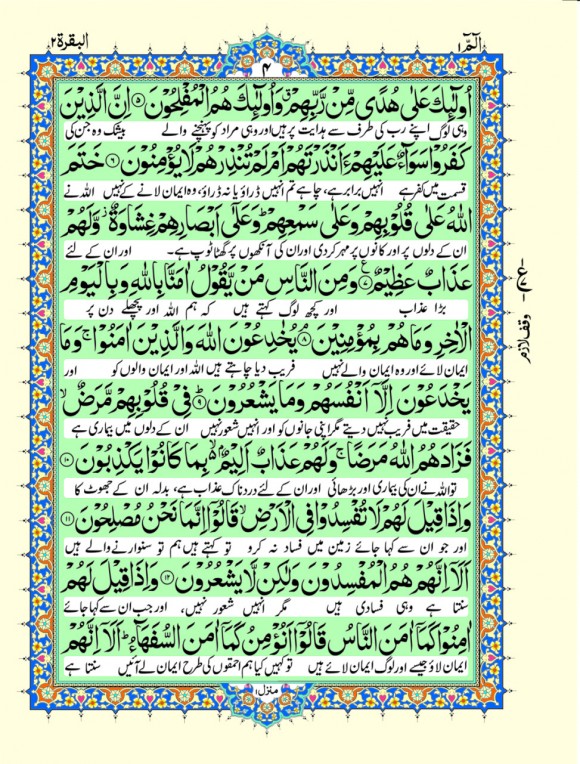 الٓمّٓ ١
البقرة ٢
٤
اُولٰٓئِكَ عَلٰی هُدًی مِّنْ رَّبِّهِمْ ۗ وَاُولٰٓئِكَ هُمُ الْمُفْلِحُوْنَ ۝٥ اِنَّ الَّذِیْنَ
وہی لوگ اپنے رب کی طرف سے ہدایت پر ہیں اور وہی مراد کو پہنچنے والے بیشک وہ جن کی
كَفَرُوْا سَوَآءٌ عَلَیْهِمْ ءَاَنْذَرْتَهُمْ اَمْ لَمْ تُنْذِرْهُمْ لَا یُؤْمِنُوْنَ ۝٦ خَتَمَ
قسمت میں کفر ہے انہیں برابر ہے، چاہے تم انہیں ڈراؤ یا نہ ڈراؤ، وہ ایمان لانے کے نہیں اللہ نے
اللّٰهُ عَلٰی قُلُوْبِهِمْ وَعَلٰی سَمْعِهِمْ ؕ وَعَلٰۤی اَبْصَارِهِمْ غِشَاوَةٌ ؗ وَّلَهُمْ
ان کے دلوں پر اور کانوں پر مہر کردی اور ان کی آنکھوں پر گھٹاٹوپ ہے۔ اور ان کے لئے
عَذَابٌ عَظِیْمٌ ۝٧ وَمِنَ النَّاسِ مَنْ یَّقُوْلُ اٰمَنَّا بِاللّٰهِ وَبِالْیَوْمِ
بڑا عذاب اور کچھ لوگ کہتے ہیں کہ ہم اللہ اور پچھلے دن پر
الْاٰخِرِ وَمَا هُمْ بِمُؤْمِنِیْنَ ۝٨ یُخٰدِعُوْنَ اللّٰهَ وَالَّذِیْنَ اٰمَنُوْا ۚ وَمَا
ایمان لائے اور وہ ایمان والے نہیں فریب دیا چاہتے ہیں اللہ اور ایمان والوں کو اور
یَخْدَعُوْنَ اِلَّاۤ اَنْفُسَهُمْ وَمَا یَشْعُرُوْنَ ۝٩ فِیْ قُلُوْبِهِمْ مَّرَضٌ ۙ
حقیقت میں فریب نہیں دیتے مگر اپنی جانوں کو اور انہیں شعور نہیں ان کے دلوں میں بیماری ہے
فَزَادَهُمُ اللّٰهُ مَرَضًا ۚ وَلَهُمْ عَذَابٌ اَلِیْمٌۢ ۙ بِمَا كَانُوْا یَكْذِبُوْنَ ۝١٠
تو اللہ نے ان کی بیماری اور بڑھائی اور ان کے لئے دردناک عذاب ہے، بدلہ ان کے جھوٹ کا
وَاِذَا قِیْلَ لَهُمْ لَا تُفْسِدُوْا فِی الْاَرْضِ ۙ قَالُوْۤا اِنَّمَا نَحْنُ مُصْلِحُوْنَ ۝١١
اور جو ان سے کہا جائے زمین میں فساد نہ کرو تو کہتے ہیں ہم تو سنوارنے والے ہیں
اَلَاۤ اِنَّهُمْ هُمُ الْمُفْسِدُوْنَ وَلٰكِنْ لَّا یَشْعُرُوْنَ ۝١٢ وَاِذَا قِیْلَ لَهُمْ
سنتا ہے وہی فسادی ہیں مگر انہیں شعور نہیں، اور جب ان سے کہا جائے
اٰمِنُوْا كَمَاۤ اٰمَنَ النَّاسُ قَالُوْۤا اَنُؤْمِنُ كَمَاۤ اٰمَنَ السُّفَهَآءُ ؕ اَلَاۤ اِنَّهُمْ
ایمان لاؤ جیسے اور لوگ ایمان لائے ہیں تو کہیں کیا ہم احمقوں کی طرح ایمان لے آئیں سنتا ہے
وقف لازم
منزل ١